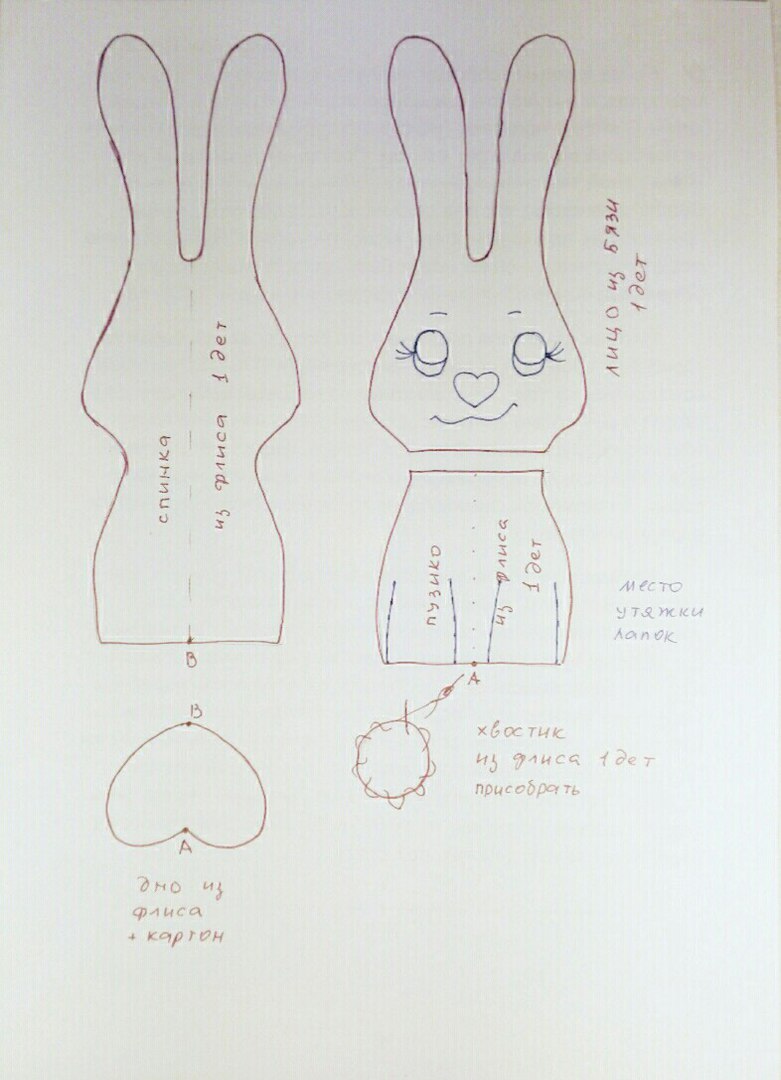 спинка
из флиса 1 дет
В
лицо из бязи
1 дет
пузико
из флиса
1 дет
А
место
утяжки
лапок
В
А
дно из
флиса
+ картон
хвостик
из флиса 1 дет
присобрать